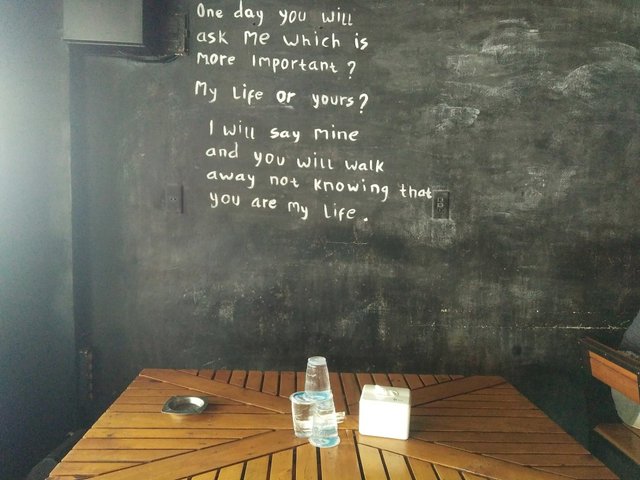 One day you will
ask Me which is
more important?
My Life or yours?
I will say mine
and you will walk
away not knowing that
you are my Life.